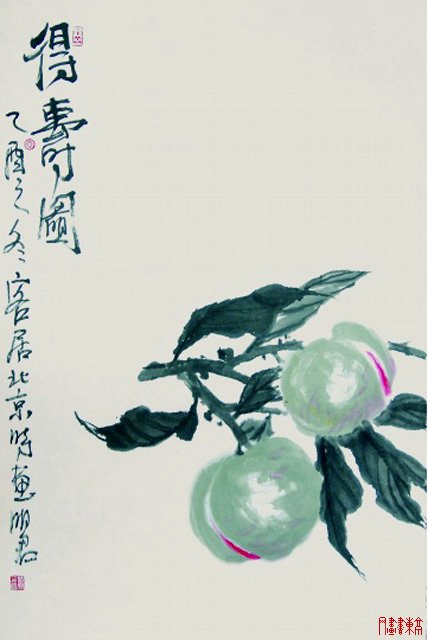 得壽圖
乙酉之冬客居北京時畫